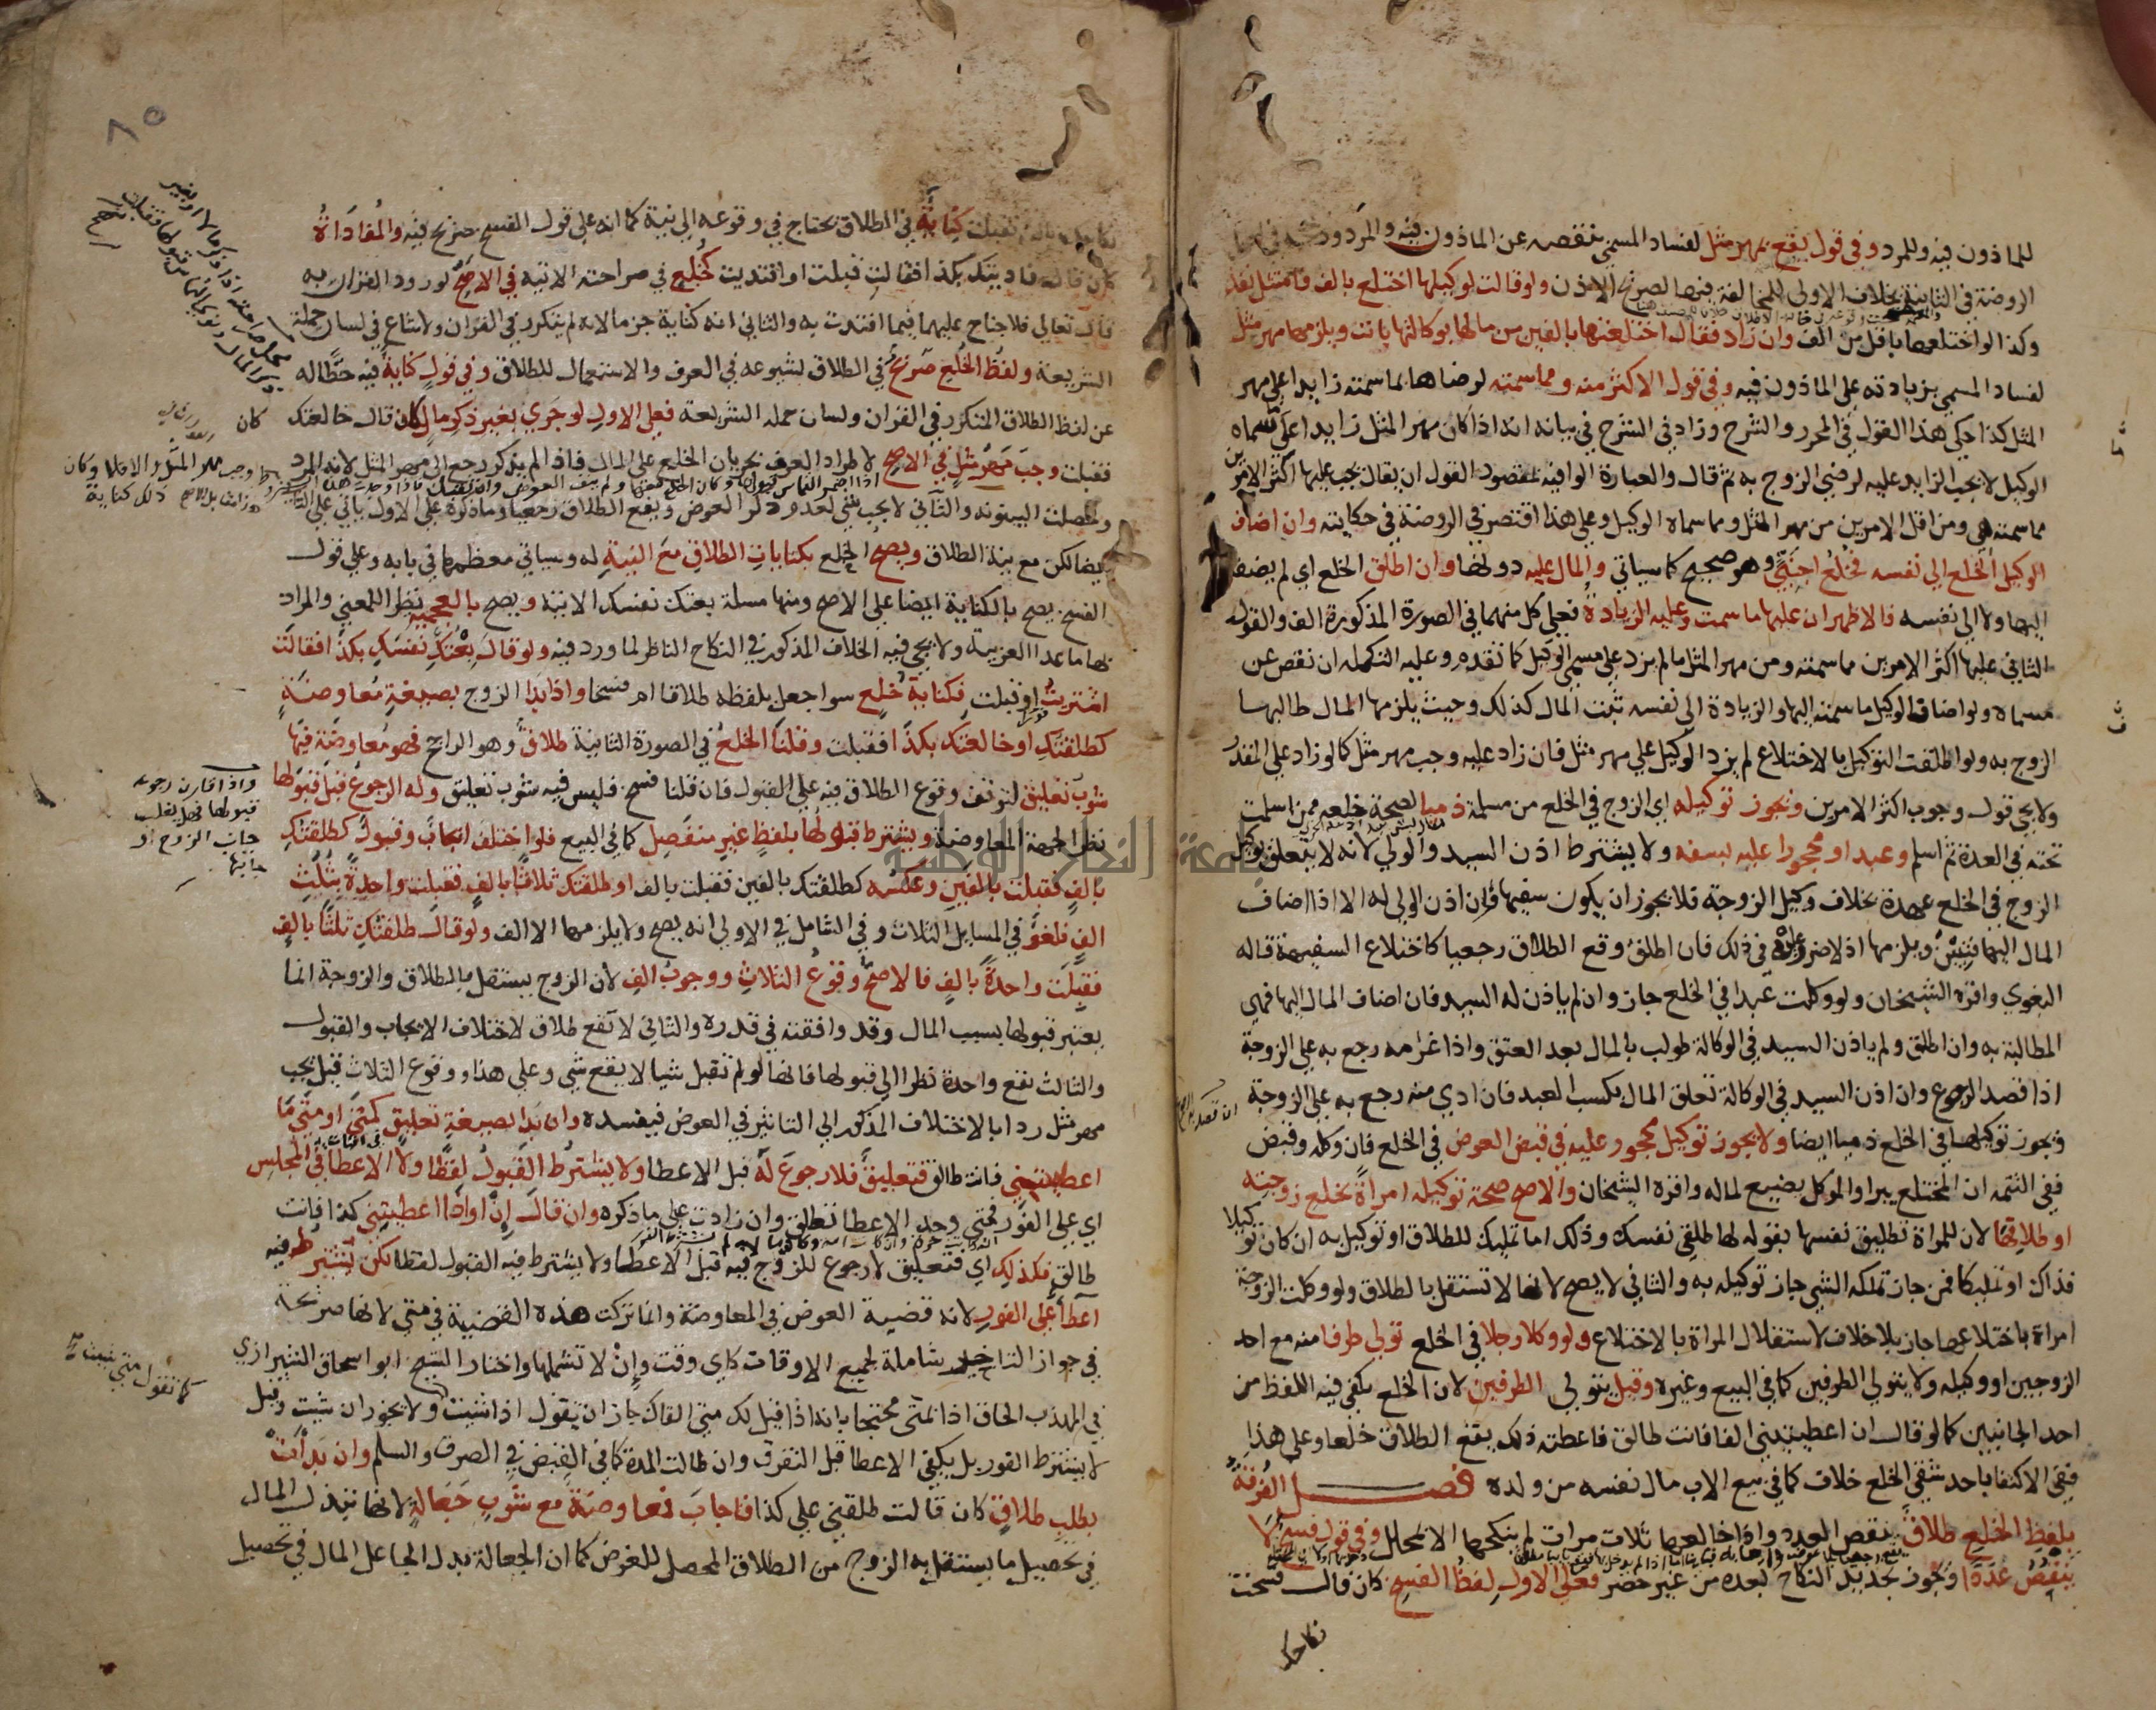 للماذون فيه وللمرد وفي قول يقع بمهر مثل لفساد المسمى بنقصه عن الماذون فيه والمردود
الروضة في الثانية بخلاف الاولى للمخالفة فيها لصريح الاذن ولو قالت لوكيلها اختلع بالف فامتثل نفذ
وكذا لو اختلعها باقل من الف وان زاد فقال اختلعتها بالفين من مالها بوكالتها بانت ويلزمها مهر مثل
لفساد المسمى بزيادته على الماذون فيه وفي قول الاكثر منه ومما سمته لرضاها بما سمته زايدا على مهر
المثل كذا حكي هذا القول في المحرر والشرح وزاد في الشرح في بيانه انه اذا كان مهر المثل زايدا على ما سماه
الوكيل لا يجب الزايد عليه لرضى الزوج به ثم قال والعبارة الوافية بمقصود القول ان يقال يجب عليها اكثر الامرين
مما سمته هي ومن اقل الامرين من مهر المثل ومما سماه الوكيل وعلى هذا اقتصر في الروضة في حكايته وان اضاف
الوكيل الخلع الى نفسه فخلع اجنبي وهو صحيح كما سياتي والمال عليه دونها وان اطلق الخلع اي لم يضفه
اليها ولا الى نفسه فالاظهر ان عليها ما سمت وعليه الزيادة فعلى كل منهما في الصورة المذكورة الف والقول
الثاني عليها اكثر الامرين مما سمته ومن مهر المثل ما لم يزد على مسمى الوكيل كما تقدم وعليه التكملة ان نقص عن
مسماه ولو اضاف الوكيل ما سمته اليها والزيادة الى نفسه ثبت المال كذلك وحيث يلزمها المال طالبها
الزوج به ولو اطلقت التوكيل بالاختلاع لم يزد الوكيل على مهر مثل فان زاد عليه وجب مهر مثل كما لو زاد على المقدر
ولا يجي قول وجوب اكثر الامرين ويجوز توكيله اي الزوج في الخلع من مسلمة ذميا لصحة خلعه ممن اسلمت
تحته في العدة ثم اسلم وعبدا ومحجورا عليه بسفه ولا يشترط اذن السيد والولي لانه لا يتعلق بوكيل
الزوج في الخلع عهدة بخلاف وكيل الزوجة فلا يجوز ان يكون سفيها وان اذن الولي له الا اذا اضاف
المال اليها فتبين ويلزمها اذ لا ضرر عليه في ذلك فان اطلق وقع الطلاق رجعيا كاختلاع السفيهة قاله
البغوي واقره الشيخان ولو وكلت عبدا في الخلع جاز وان لم ياذن له السيد فان اضاف المال اليها فهي
المطالبة به وان اطلق ولم ياذن السيد في الوكالة طولب بالمال بعد العتق واذا غرمه رجع به على الزوجة
اذا قصد الرجوع وان اذن السيد في الوكالة تعلق المال بكسب العبد فان ادي منه رجع به على الزوجة
ويجوز توكيلها في الخلع ذميا ايضا ولا يجوز توكيل محجور عليه في قبض العوض في الخلع فان وكله وقبض
ففي التتمة ان المختلع يبرا والموكل مضيع لماله واقره الشيخان والاصح صحة توكيله امراة بخلع زوجته
او طلاقها لان للمراة تطليق نفسها بقوله لها طلقي نفسك وذلك اما تمليك للطلاق او توكيل به ان كان توكيلا
فذاك او تمليكا فمن جاز تملكه الشي جاز توكيله به والثاني لا يصح لانها لا تستقل بالطلاق ولو وكلت الزوجة
امراة باختلاعها جاز بلا خلاف لاستقلال المراة بالاختلاع ولو وكلا رجلا في الخلع تولى طرفا منه مع احد
الزوجين او وكيله ولا يتولى الطرفين كما في البيع وغيره وقيل يتولى الطرفين لان الخلع يكفي فيه اللفظ من
احد الجانبين كما لو قال ان اعطيتيني الفا فانت طالق فاعطته ذلك يقع الطلاق خلعا وعلى هذا
ففي الاكتفا باحد شقي الخلع خلاف كما في بيع الاب مال نفسه من ولده فصل الفرقة
بلفظ الخلع طلاق ينقص العدد واذا خالعها ثلاث مرات لم ينكحها الا بمحلل وفي قول فسخ لا
ينقص عددا ويجوز تجديد النكاح بعده من غير حصر فعلى الاول لفظ الفسخ كان قال فسخت
نكاحك
٨٥
نكاحك بالف فقبلت كناية في الطلاق يحتاج في وقوعه الى نية كما انه على قول الفسخ صريح فيه والمفاداة
كان قال فاديتك بكذا فقالت قبلت او افتديت كخلع في صراحته الاتية في الاصح لورود القران به
قال تعالى فلا جناح عليهما فيما افتدت به والثاني انه كناية جزما لانه لم يتكرر في القران ولا شاع في لسان حملة
الشريعة ولفظ الخلع صريح في الطلاق لشيوعه في العرف والاستعمال للطلاق وفي قول كناية فيه حطا له
عن لفظ الطلاق المتكرر في القران ولسان حملة الشريعة فعلى الاول لو جرى بغير ذكر مال كان قال خالعتك
فقبلت وجب مهر مثل في الاصح لاطراد العرف بجريان الخلع على المال فاذا لم يذكر رجع الى مهر المثل لانه المرد
وحصلت البينونة والثاني لا يجب شي لعدم ذكر العوض ويقع الطلاق رجعيا وما ذكره على الاول ياتي على الثاني
ايضا لكن مع نية الطلاق ويصح الخلع بكنايات الطلاق مع النية له وسياتي معظمها في بابه وعلى قول
الفسخ يصح بالكناية ايضا على الاصح ومنها مسلة بعتك نفسك الاتية ويصح بالعجمية نظرا للمعنى والمراد
بها ما عدا العربية ولا يجي فيه الخلاف المذكور في النكاح الناظر لما ورد فيه ولو قال بعتك نفسك بكذا فقالت
اشتريت او قبلت فكناية خلع سوا جعل بلفظه طلاقا ام فسخا واذا بدا الزوج بصيغة معاوضة
كطلقتك او خالعتك بكذا فقبلت وقلنا الخلع في الصورة الثانية طلاق وهو الراجح فهو معاوضة فيها
شوب تعليق لتوقف وقوع الطلاق فيه على القبول فان قلنا فسخ فليس فيه شوب تعليق وله الرجوع قبل قبولها
نظرا لجهة المعاوضة ويشترط قبولها بلفظ غير منفصل كما في البيع فلو اختلف ايجاب وقبول كطلقتك
بالف فقبلت بالفين وعكسه كطلقتك بالفين فقبلت بالف او طلقتك ثلاثا بالف فقبلت واحدة بثلث
الف فلغو في المسايل الثلاث وفي الشامل في الاولى انه يصح ولا يلزمها الا الف ولو قال طلقتك ثلثا بالف
فقبلت واحدة بالف فالاصح وقوع الثلاث ووجوب الف لان الزوج يستقل بالطلاق والزوجة انما
يعتبر قبولها بسبب المال وقد وافقته في قدره والثاني لا تقع طلاق لاختلاف الايجاب والقبول
والثالث يقع واحدة نظرا الى قبولها فانها لو لم تقبل شيا لا يقع شي وعلى هذا ووقوع الثلاث قيل يجب
مهر مثل ردا بالاختلاف المذكور الى التاثير في العوض فيفسده وان بدا بصيغة تعليق كمتى او متى ما
اعطيتني فانت طالق فتعليق فلا رجوع له قبل الاعطا ولا يشترط القبول لفظا ولا الاعطا في المجلس
اي على الفور فمتى وجد الاعطا تطلق وان زادت على ما ذكره وان قال ان او اذا اعطيتني كذا فانت
طالق فكذلك اي فتعليق لا رجوع للزوج فيه قبل الاعطا ولا يشترط فيه القبول لفظا لكن يشترط فيه
اعطا على الفور لانه قضية العوض في المعاوضة وانما تركت هذه القضية في متى لانها صريحة
في جواز التاخير شاملة لجميع الاوقات كاي وقت وان لا تشملها واختار الشيخ ابو اسحاق الشيرازي
في المهذب الحاق اذا بمتى محتجا بانه اذا قيل لك متى القاك جاز ان تقول اذا شيت ولا يجوز ان شيت وقيل
لا يشترط الفور بل يكفي الاعطا قبل التفرق وان طالت المدة كما في القبض في الصرف والسلم وان بدات
بطلب طلاق كان قالت طلقني على كذا فاجاب فمعاوضة مع شوب جعالة لانها تبذل المال
في تحصيل ما يستقل به الزوج من الطلاق المحصل للغرض كما ان الجعالة بذل الجاعل المال في تحصيل
واذا قارن رجوعه
قبولها فهل يغلب
جانب الزوج او
جانبها
كما تقول متى شيت
جامعة النجاح الوطنية